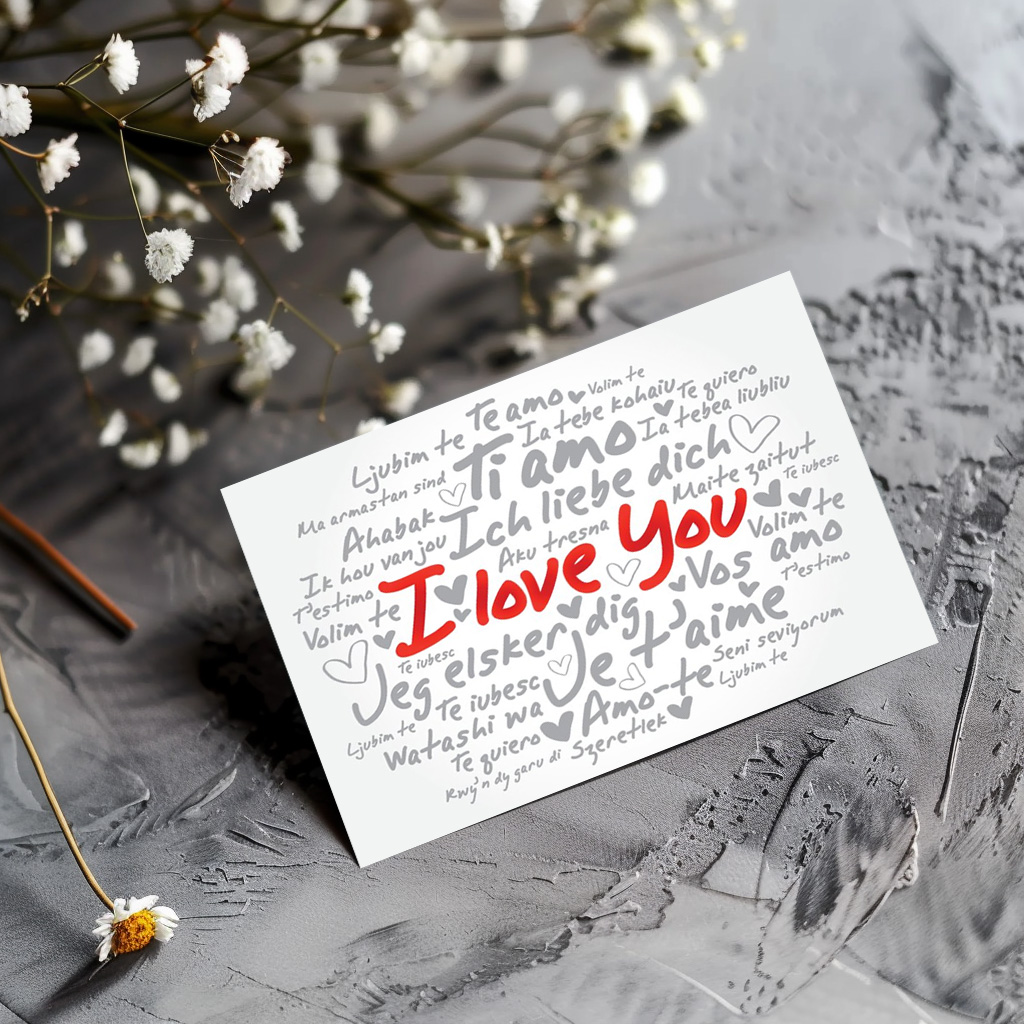 Te amo Volim te
Ljubim te Ia tebe kohaiu Te quiero
Ma armastan sind Ti amo Ia tebea liubliu
Ahabak Ich liebe dich
Ik hou van jou Aku tresna Maite zaitut Te iubesc
T'estimo I love You Volim te
Volim te Vos amo
Te iubesc Jeg elsker dig T'estimo
Te iubesc Je t'aime
Ljubim te Watashi wa Amo-te Seni seviyorum
Te quiero Ljubim te
Rwy'n dy garu di Szeretlek